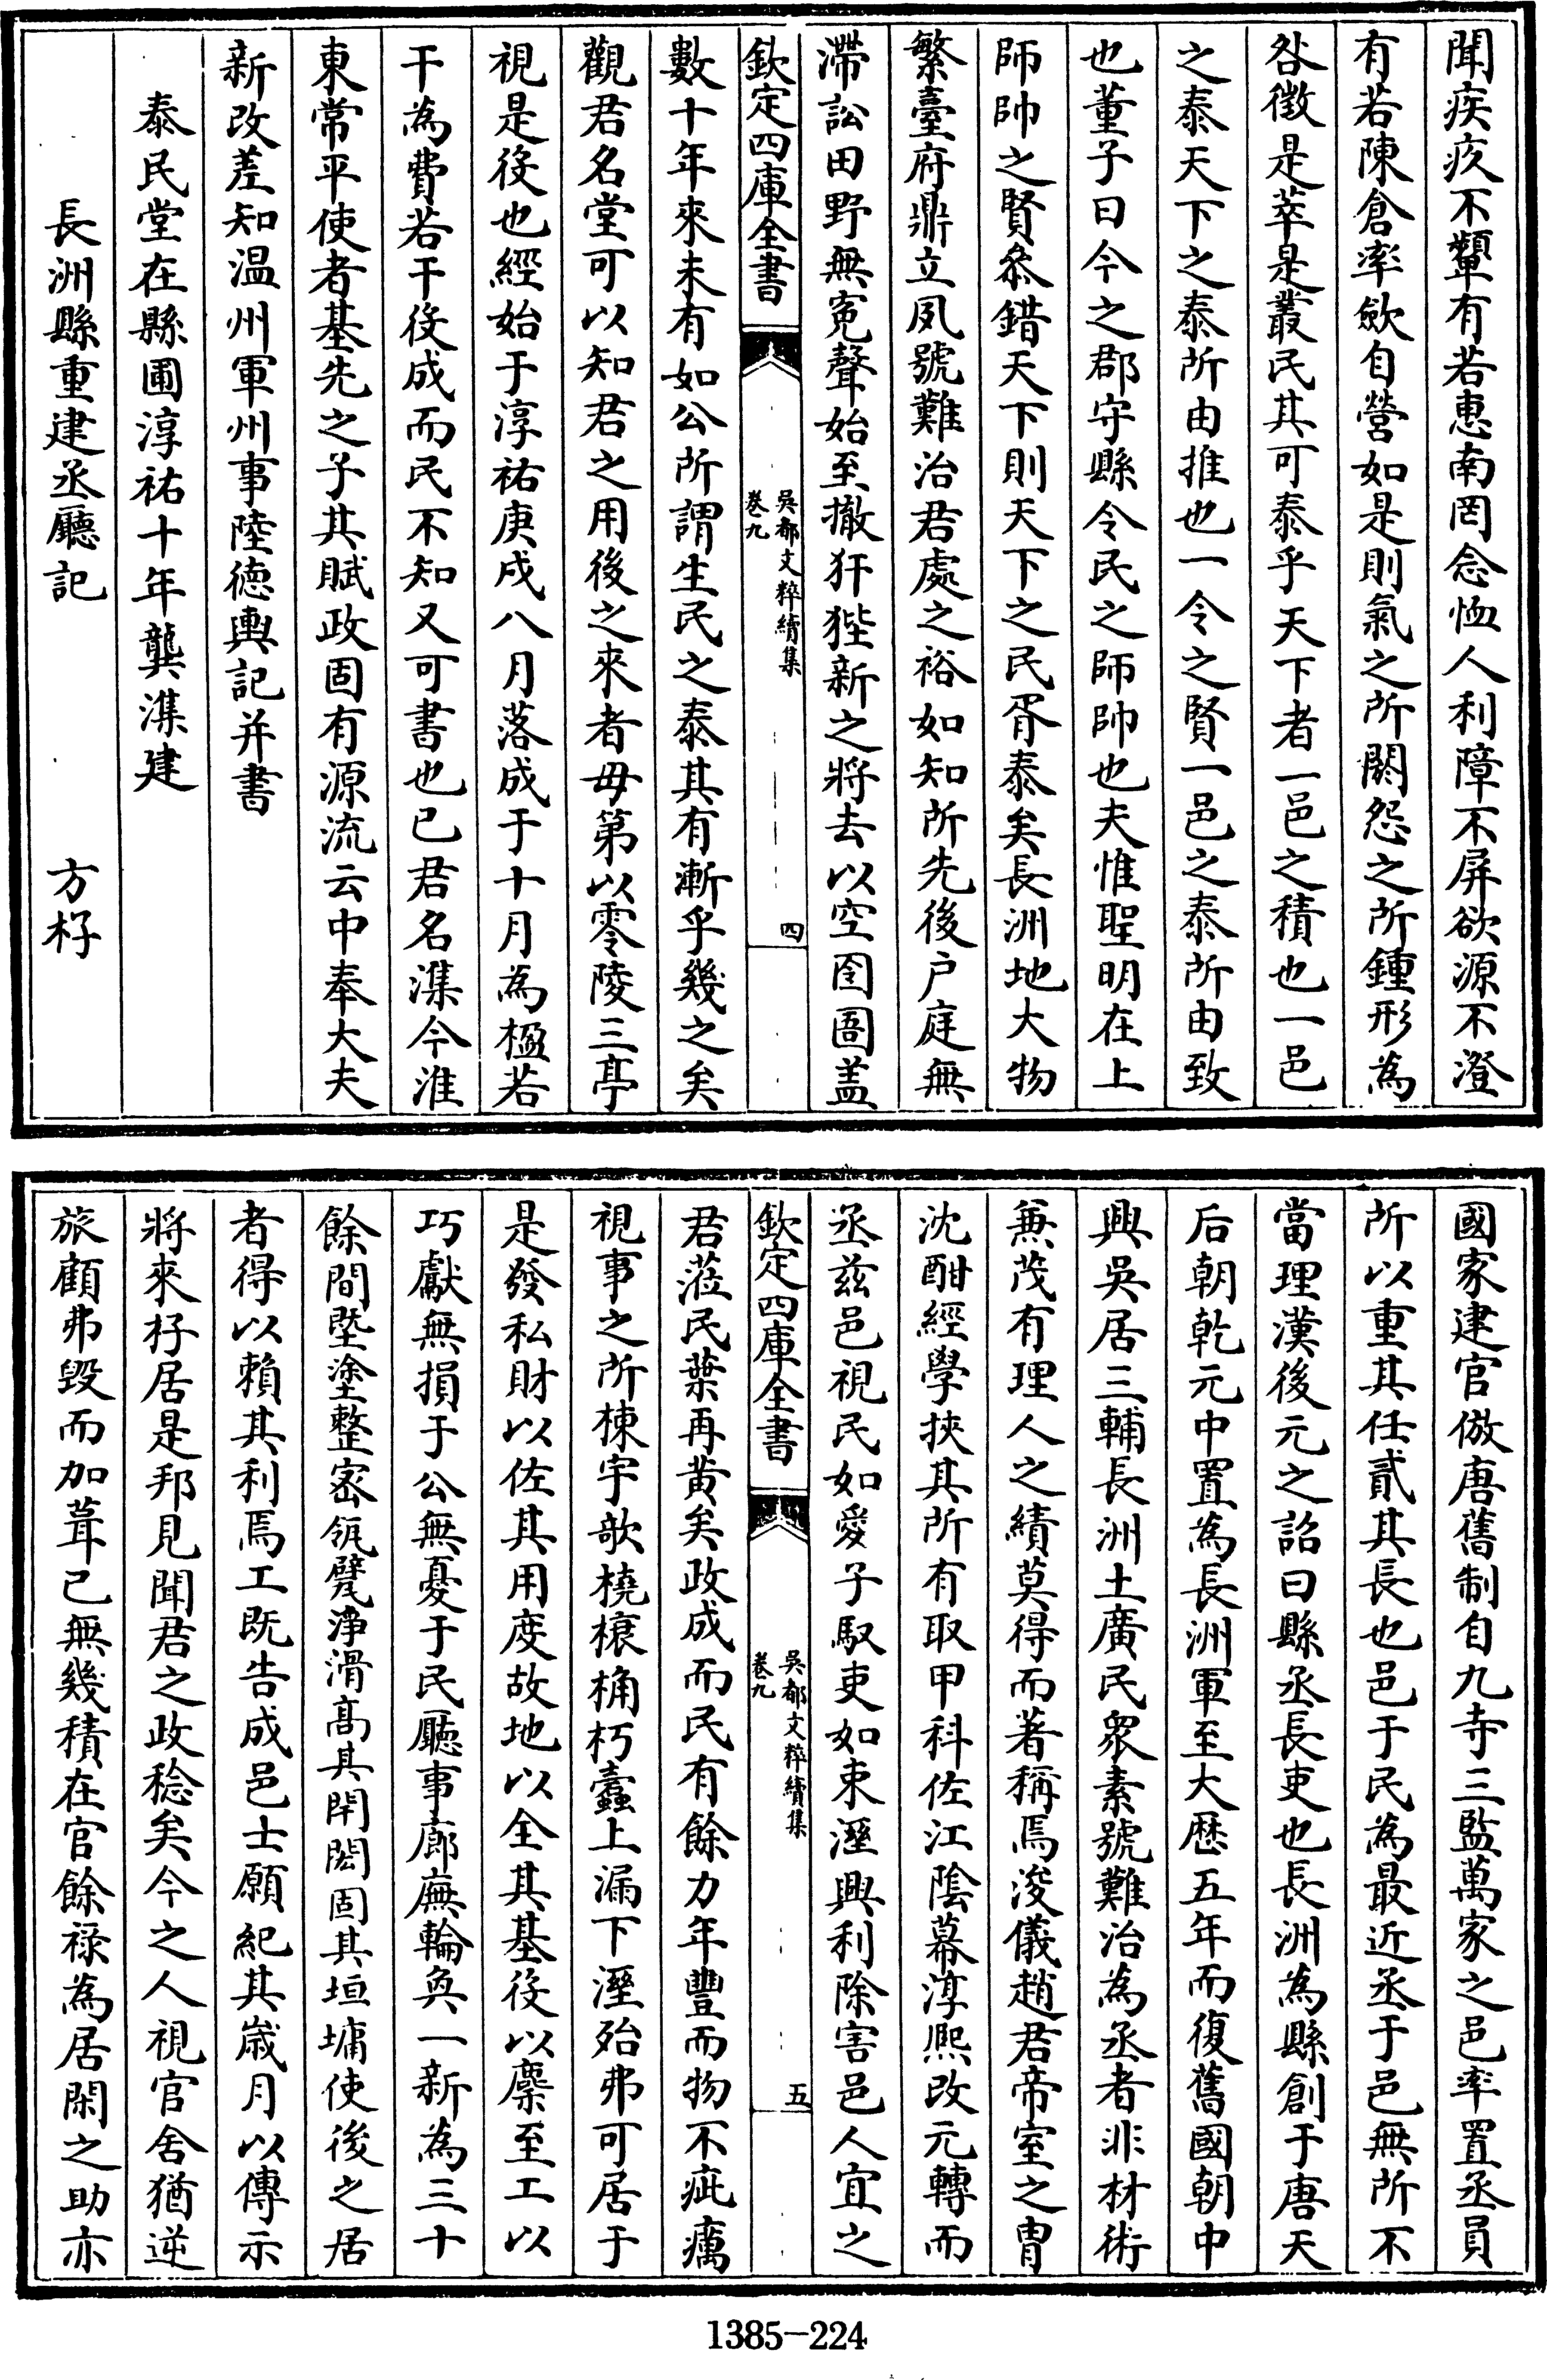 聞疾疚不顰有若惠南罔念恤人利障不屏欲源不澄
有若陳倉率歛自營如是則氣之所閼怨之所鍾形為
咎徵是萃是叢民其可泰乎天下者一邑之積也一邑
之泰天下之泰所由推也一令之賢一邑之泰所由致
也董子曰今之郡守縣令民之師帥也夫惟聖明在上
師帥之賢叅錯天下則天下之民胥泰矣長洲地大物
繁臺府鼎立夙號難治君處之裕如知所先後户庭無
滯訟田野無寃聲始至撤犴狴新之將去以空囹圄盖
欽定四庫全書
吳都文粹續集
卷九
四
數十年來未有如公所謂生民之泰其有漸乎幾之矣
觀君名堂可以知君之用後之來者毋第以零陵三亭
視是役也經始于淳祐庚戌八月落成于十月為楹若
干為費若干役成而民不知又可書也已君名潗今淮
東常平使者基先之子其賦政固有源流云中奉大夫
新改差知温州軍州事陸德輿記并書
泰民堂在縣圃淳祐十年龔潗建
長洲縣重建丞廳記
方杍
國家建官倣唐舊制自九寺三監萬家之邑率置丞員
所以重其任貳其長也邑于民為最近丞于邑無所不
當理漢後元之詔曰縣丞長吏也長洲為縣創于唐天
后朝乾元中置為長洲軍至大歷五年而復舊國朝中
興吳居三輔長洲土廣民衆素號難治為丞者非材術
兼茂有理人之績莫得而著稱焉浚儀趙君帝室之胄
沈酣經學挾其所有取甲科佐江陰幕淳熙改元轉而
丞兹邑視民如愛子馭吏如束溼興利除害邑人宜之
欽定四庫全書
吳都文粹續集
卷九
五
君蒞民葉再黄矣政成而民有餘力年豐而物不疵癘
視事之所棟宇欹橈榱桷朽蠹上漏下溼殆弗可居于
是發私財以佐其用度故地以全其基役以麇至工以
巧獻無損于公無憂于民廳事廊廡輪奐一新為三十
餘間墍塗整宻瓴甓淨滑髙其閈閎固其垣墉使後之居
者得以賴其利焉工既告成邑士願紀其嵗月以傳示
將來杍居是邦見聞君之政稔矣今之人視官舍猶逆
旅顧弗毁而加葺已無幾積在官餘禄為居閑之助亦
1385-224